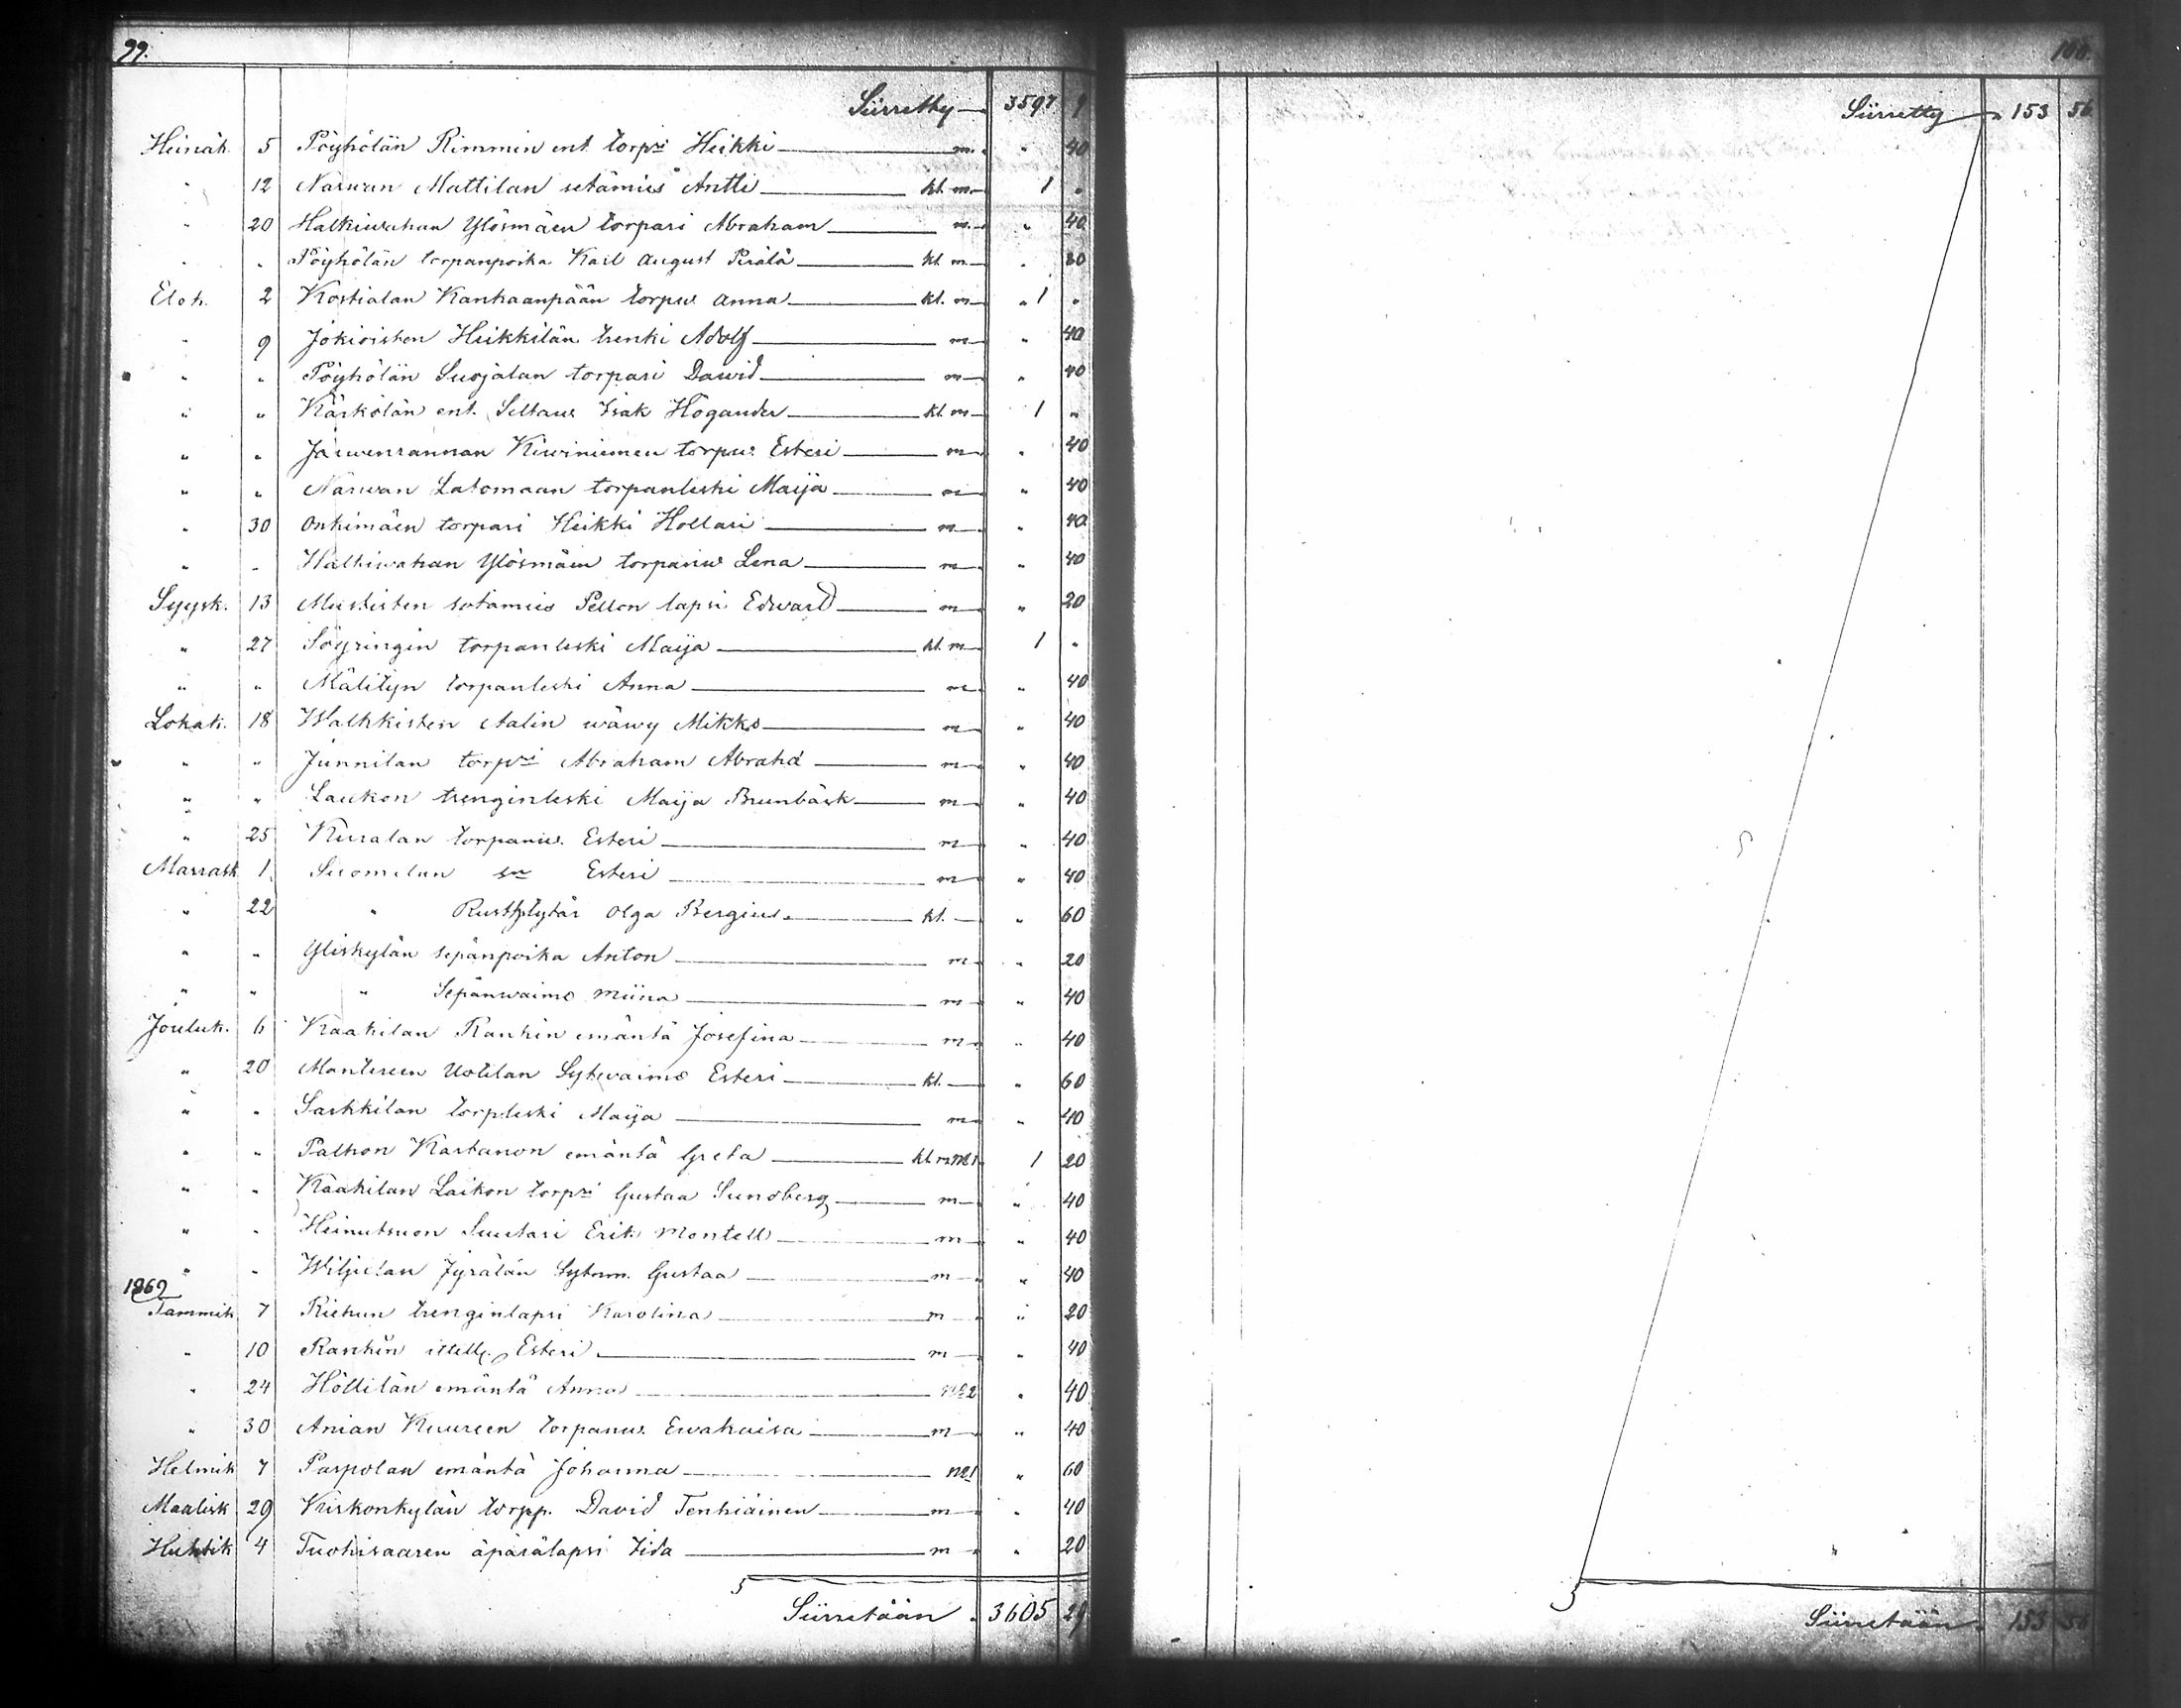 99.
Siirretty 3597 9
Heinäk. 5 Pöyhölän Rimmin ent. torpri Heikki m. " 40
" 12 Narwan Mattilan sotamies Antti kl. m. 1 "
" 20 Halkiwahan Ylösmäen torpari Abraham m. " 40
" " Pöyhölän torpanpoika Karl August Perälä kl. m. " 80
Elok. 2 Kostialan Kanhaanpään torpw. Anna kl. m. " 1 "
" 9 Jokioisten Heikkilän trenki Adolf m " 40
" " Pöyhölän Suojalan torpari Dawid m " 40
" " Kärkölän ent. Seltaus Isak Högander kl. m 1 "
" " Järwenrannan Kiwiniemen torpw. Esteri m " 40
" " Narwan Latomaan torpanleski Maija m " 40
" 30 Onkimäen torpari Heikki Hollari m " 40
" " Halkiwahan Ylösmäen torpariw Lena m " 40
Syysk. 13 Mustisten sotamies Pellon lapsi Edward m " 20
" 27 Söyringin torpanleski Maija kl. m 1 "
" " Mälityn torpanleski Anna m " 40
Lokak. 18 Walkkisten Aalin wäwy Mikko m " 40
" " Junnilan torpri Abraham Abrahd m " 40
" " Laukon trenginleski Maija Brunbäck m " 40
" 25 Kuralan torpanw. Esteri m " 40
Marrask. 1. Suomelan sm Esteri m " 40
" 22 " Rusthtytär Olga Bergius kl. " 60
" " Yliskylän sepänpoika Anton m " 20
" " " Sepänwaimo Miina m " 40
Jouluk. 6 Kaakilan Rankin emäntä Josefina m " 40
" 20 Mantereen Uotilan Sytwaimo Esteri kl. " 60
" " Sarkkilan torpleski Maija m " 40
" " Palhon Kartanon emäntä Greta kl. m No 1 1 20
" " Kaakilan Laikon torpri Gustaa Sundberg m " 40
" " Heinutsuon Suutari Erik Montell m " 40
" " Wiljielan Jyrälän Sytmm. Gustaa m " 40
1869
Tammik. 7 Riehun trenginlapsi Karolina m " 20
" 10 Rankin ittell. Esteri m " 40
" 24 Höllilän emäntä Anna No 2 " 40
" 30 Anian Kuureen torpanw. Ewakaisa m " 40
Helmik 7 Parpolan emäntä Johanna No 1 " 60
Maalisk 29 Kirkonkylän torpp. David Tenhiäinen m " 40
Huhtik 4 Tuohisaaren äpärälapsi Iida m " 20
Siirretään 3605 29
100.
Siirretty 153 56
Siirretään 153 56